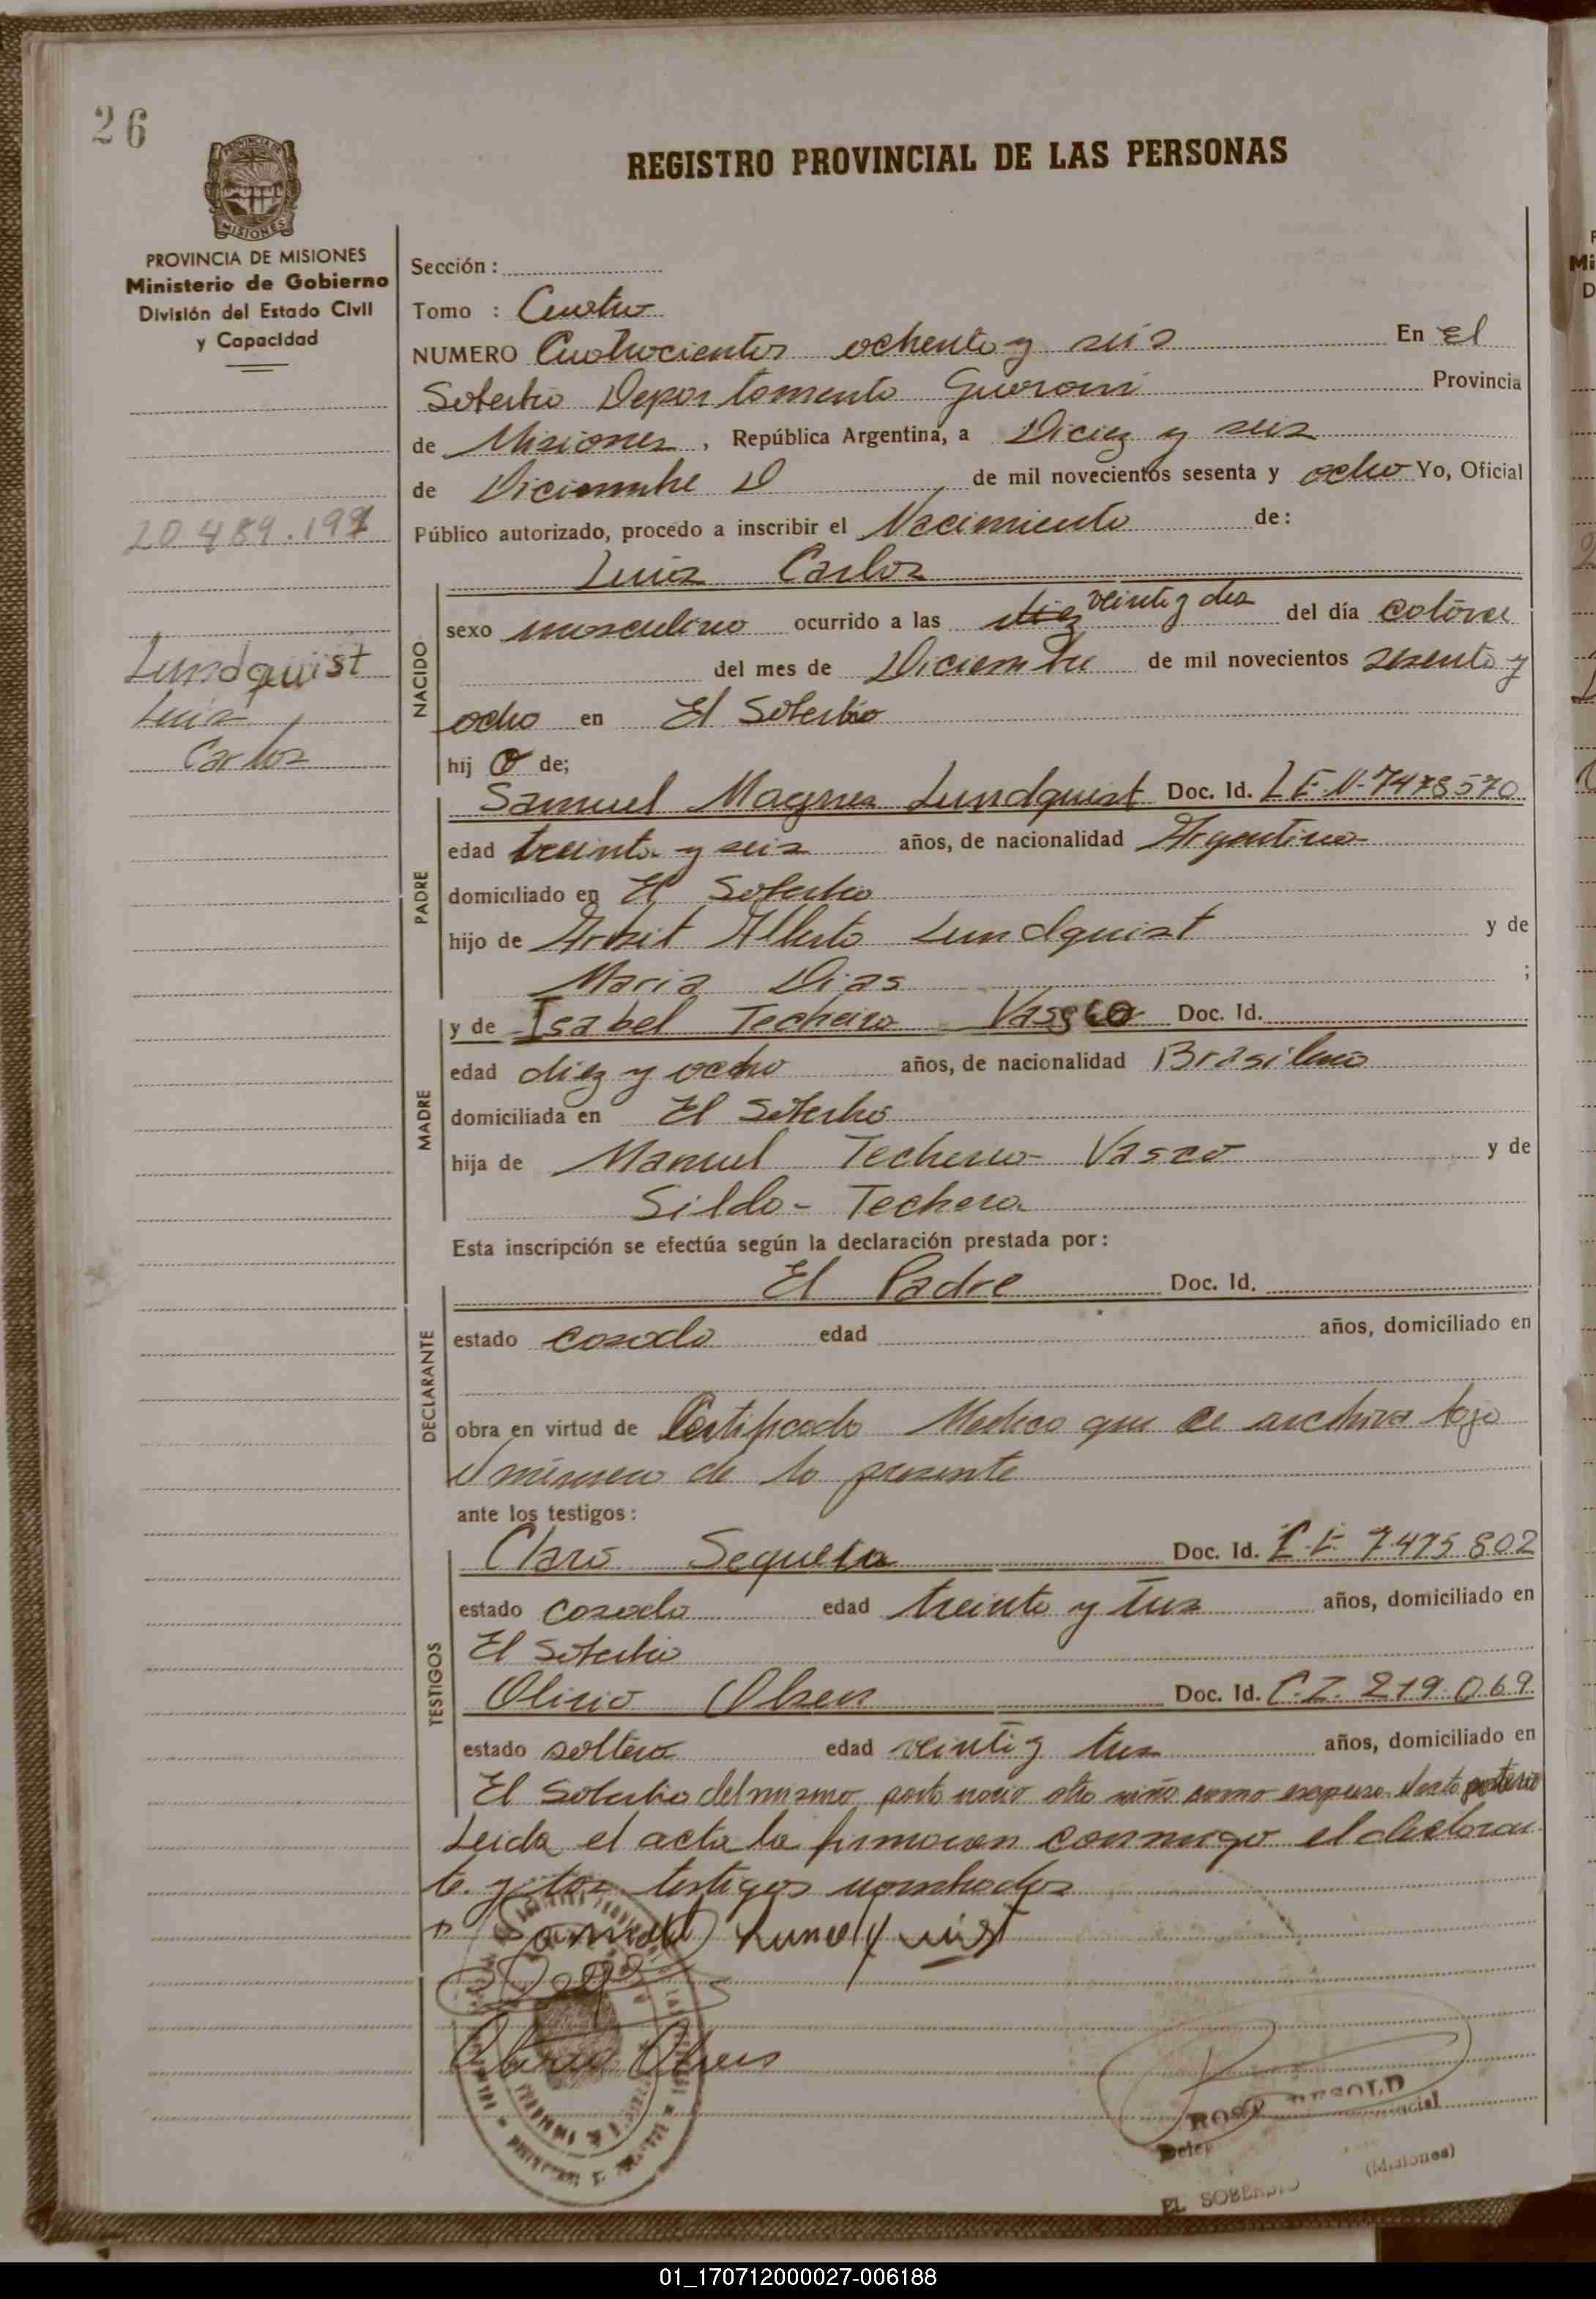 26
REGISTRO PROVINCIAL DE LAS PERSONAS
PROVINCIA DE MISIONES
Ministerio de Gobierno
División del Estado Civil
y Capacidad
Sección :
Tomo : Cuatro
NUMERO Cuatrocientos ochenta y seis En El
Soberbio Departamento Guarani Provincia
de Misiones , República Argentina, a Diciez y seis
de Diciembre D de mil novecientos sesenta y ocho Yo, Oficial
20.489.191
Público autorizado, procedo a inscribir el Nacimiento de:
Luis Carlos
NACIDO
sexo masculino ocurrido a las diez veinte y dos del día catorce
del mes de Diciembre de mil novecientos sesenta y
Lundquist
Luis
Carlos
ocho en El Soberbio
hij o de;
PADRE
Samuel Magnes Lundquist Doc. Id. L E. N- 7478570
edad treinta y seis años, de nacionalidad Argentino
domiciliado en El Soberbio
hijo de Alberto Lundquist y de
Maria Dias ;
MADRE
y de Isabel Techeira Vasco Doc. Id.
edad diez y ocho años, de nacionalidad Brasilena
domiciliada en El Soberbio
hija de Manuel Techera Vasco y de
Silda - Techera
Esta inscripción se efectúa según la declaración prestada por :
DECLARANTE
El Padre Doc. Id.
estado casado edad años, domiciliado en
obra en virtud de Certificado Medico que se archiva bajo
el número de la presente
ante los testigos :
TESTIGOS
Claro Sequera Doc. Id. L.E 7.475.802
estado casado edad treinta y tres años, domiciliado en
El Soberbio
Olirio Olsen Doc. Id. C.I. 219.069
estado soltero edad veinti y tres años, domiciliado en
El Soberbio del mismo parto nacio otro niño como expresa el acta posterior
Leida el acta la firmaran conmigo el declaran
te y los testigos nombrados
Samuel Lundquist
Olirio Olsen
BESOLD
EL SOBERBIO (Misiones)
01_170712000027-006188